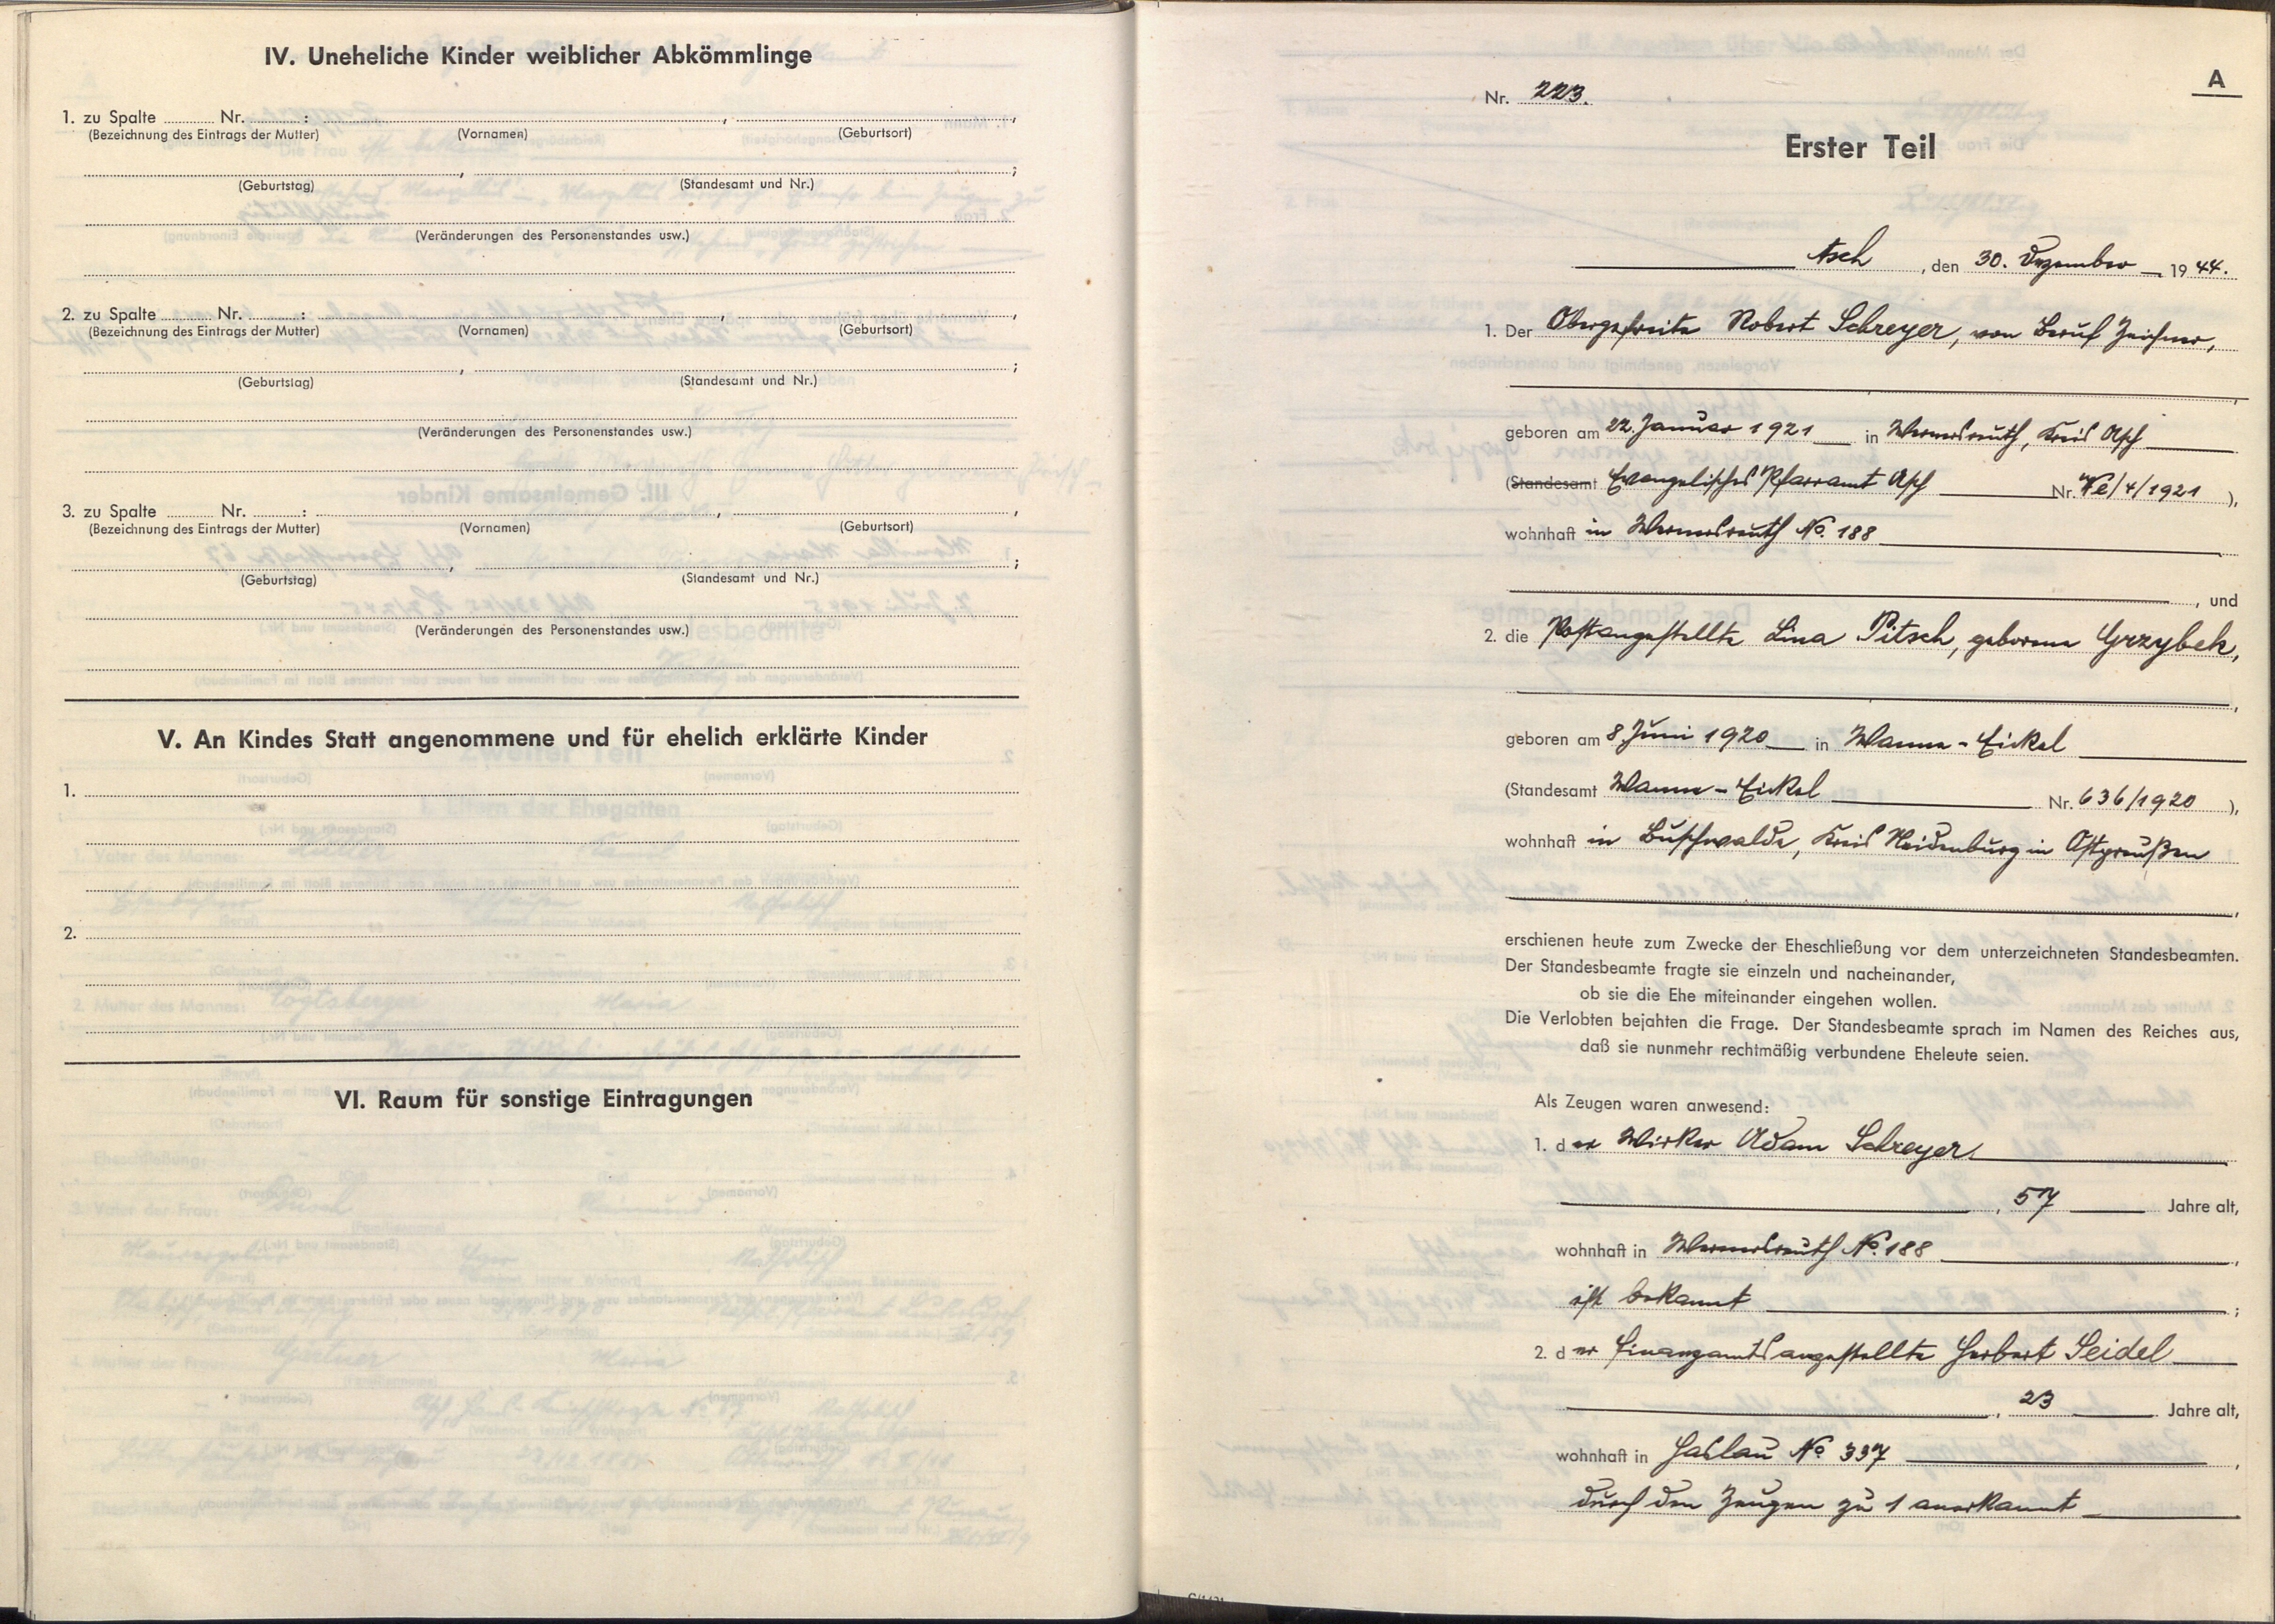 IV. Uneheliche Kinder weiblicher Abkömmlinge
1. zu Spalte Nr. : , ,
(Bezeichnung des Eintrags der Mutter) (Vornamen) (Geburtsort)
, ;
(Geburtstag) (Standesamt und Nr.)
(Veränderungen des Personenstandes usw.)
2. zu Spalte Nr. : , ,
(Bezeichnung des Eintrags der Mutter) (Vornamen) (Geburtsort)
, ;
(Geburtstag) (Standesamt und Nr.)
(Veränderungen des Personenstandes usw.)
3. zu Spalte Nr. : , ,
(Bezeichnung des Eintrags der Mutter) (Vornamen) (Geburtsort)
, ;
(Geburtstag) (Standesamt und Nr.)
(Veränderungen des Personenstandes usw.)
V. An Kindes Statt angenommene und für ehelich erklärte Kinder
1.
2.
VI. Raum für sonstige Eintragungen
A
Nr. 223.
Erster Teil
Asch, den 30. Dezember 1944.
1. Der Obergefreite Robert Schreyer, von Beruf Zeichner,
geboren am 22. Januar 1921 in Wernersreuth, Kreis Asch
(Standesamt Evangelisches Pfarramt Asch Nr. We/4/1921 ),
wohnhaft in Wernersreuth No. 188
, und
2. die Postangestellte Lina Pitsch, geborene Grzybek,
geboren am 8. Juni 1920 in Wanne-Eickel
(Standesamt Wanne-Eickel Nr. 636/1920 ),
wohnhaft in Buschwalde, Kreis Neidenburg in Ostpreußen
erschienen heute zum Zwecke der Eheschließung vor dem unterzeichneten Standesbeamten.
Der Standesbeamte fragte sie einzeln und nacheinander,
ob sie die Ehe miteinander eingehen wollen.
Die Verlobten bejahten die Frage. Der Standesbeamte sprach im Namen des Reiches aus,
daß sie nunmehr rechtmäßig verbundene Eheleute seien.
Als Zeugen waren anwesend:
1. der Wirker Adam Schreyer
, 57 Jahre alt,
wohnhaft in Wernersreuth No. 188 ,
ist bekannt ;
2. der Finanzamtsangestellte Herbert Seidel
, 23 Jahre alt,
wohnhaft in Haslau No 337 ,
durch den Zeugen zu 1 anerkannt